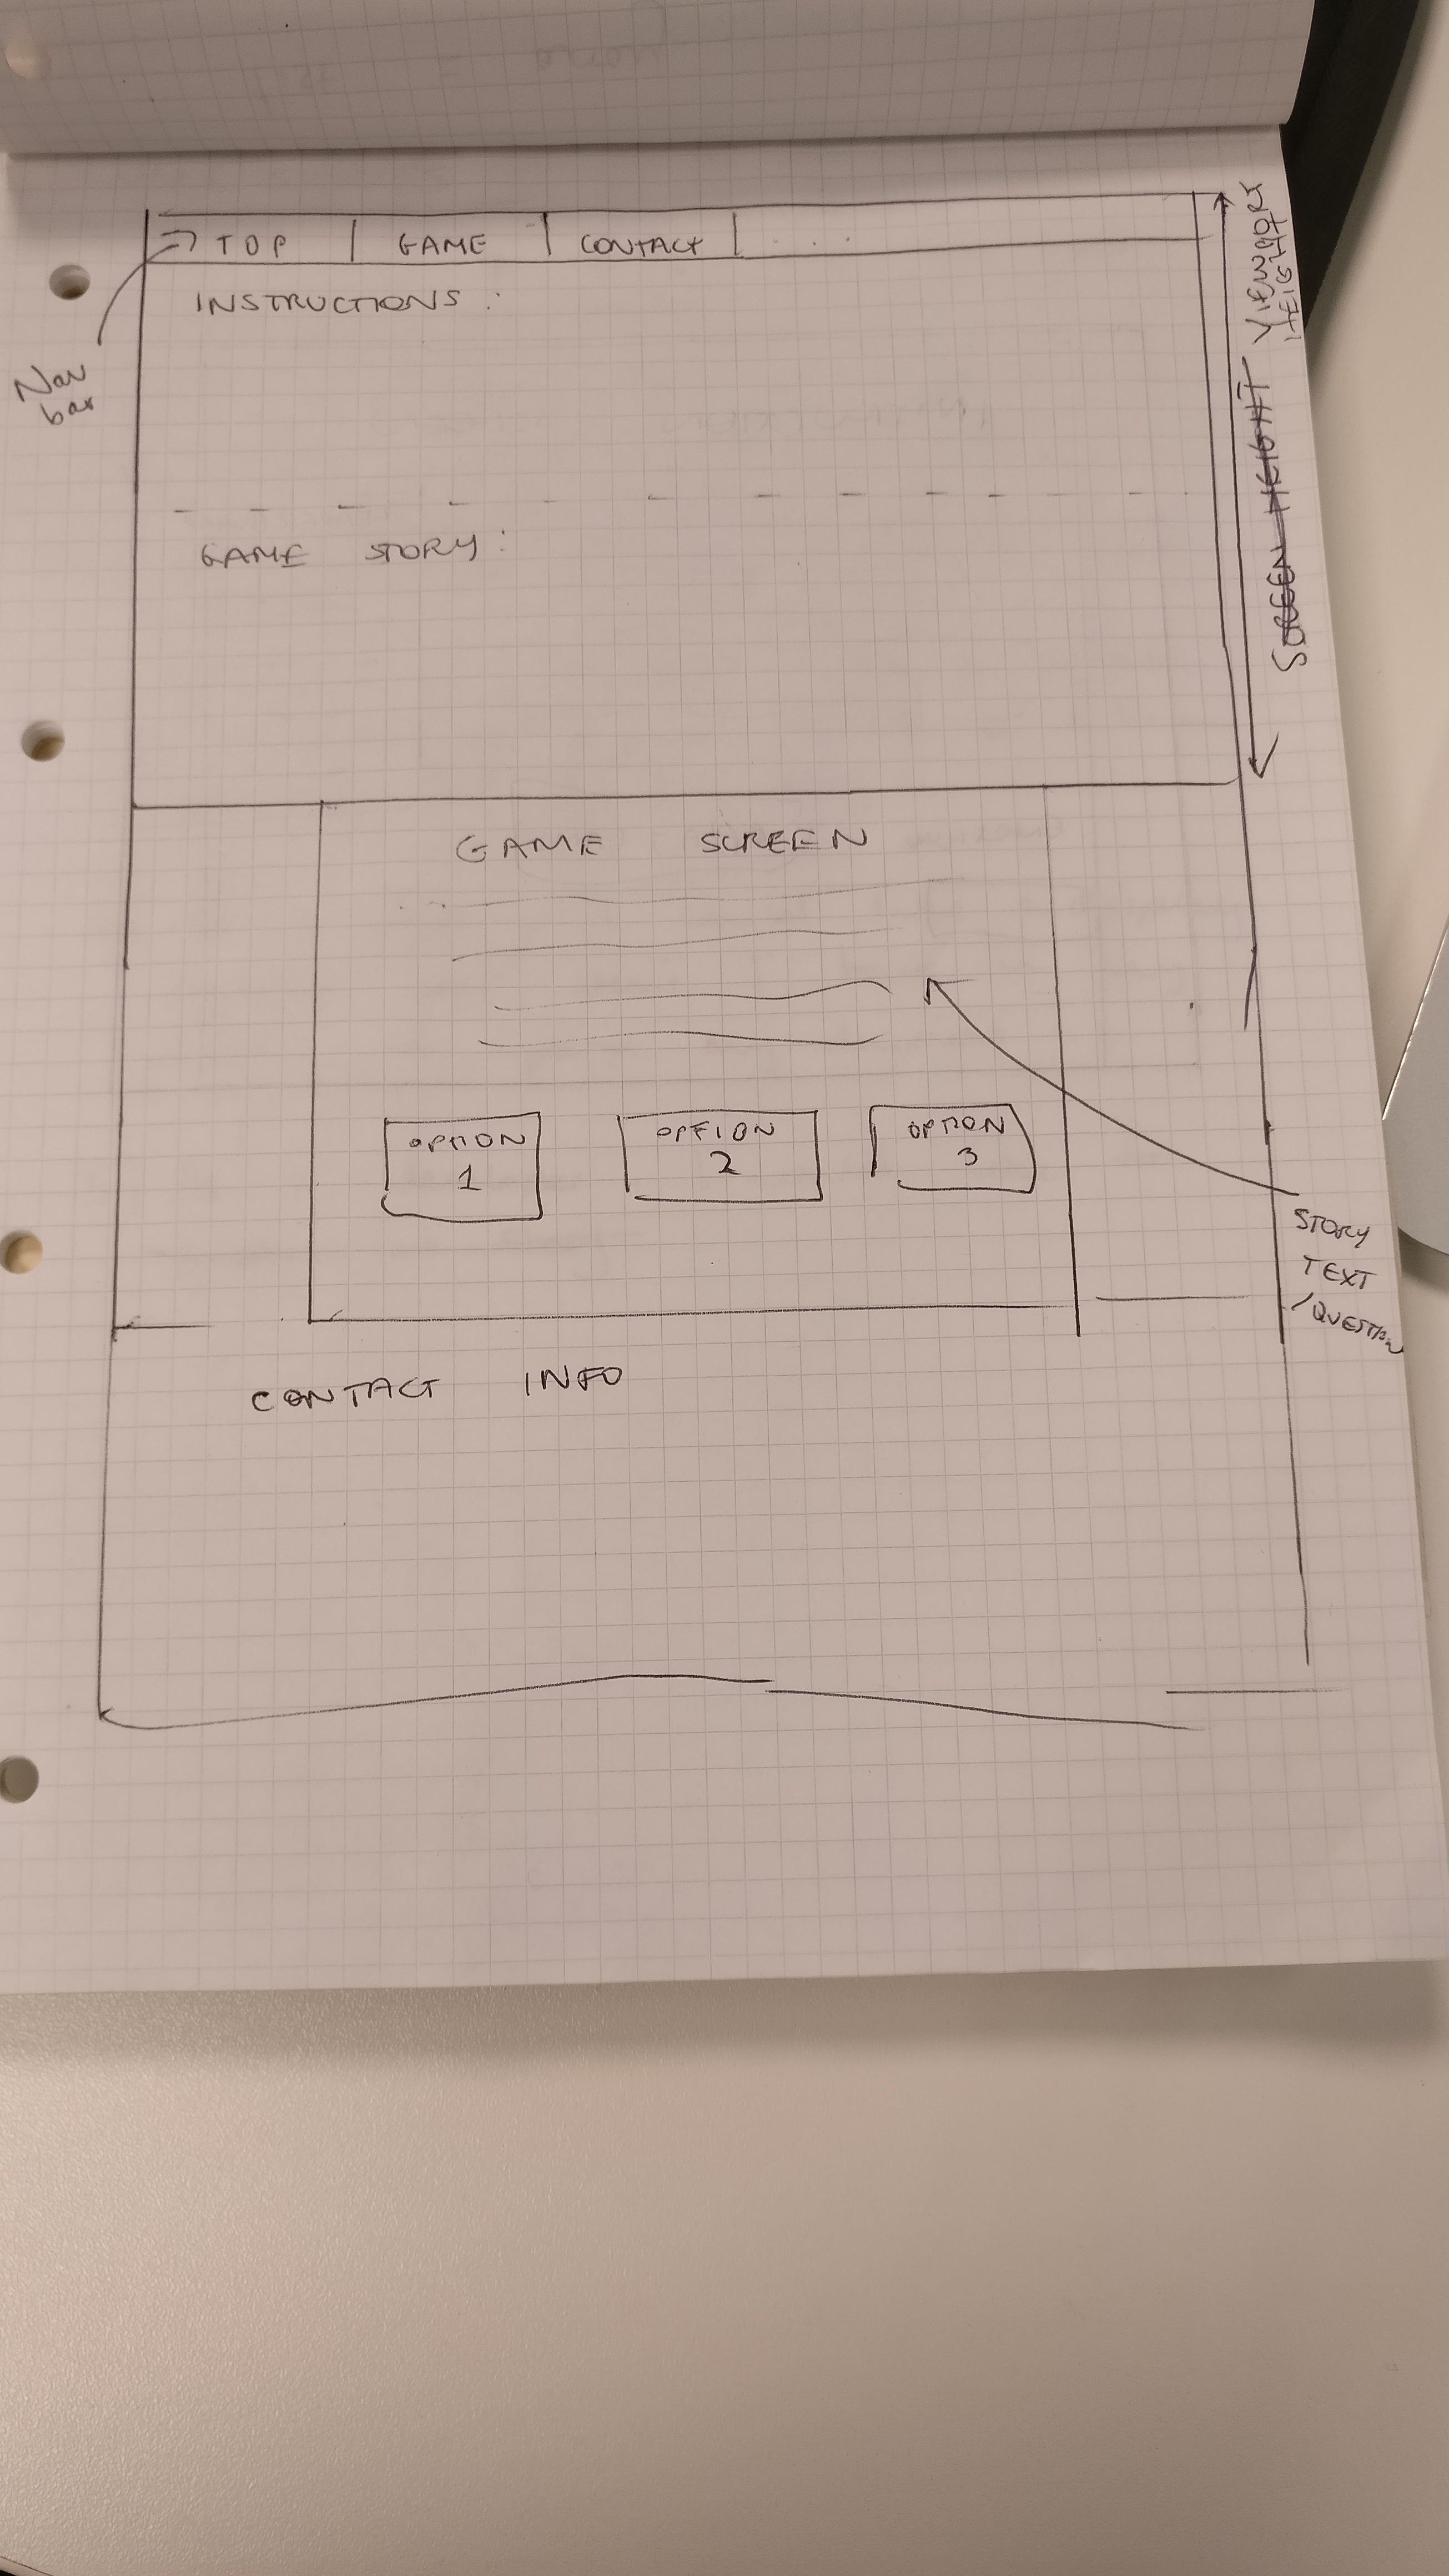 TOP GAME CONTACT . . .
INSTRUCTIONS :
Nav
bar
SCREEN HEIGHT VIEWPORT
HEIGHT
GAME STORY :
GAME SCREEN
OPTION
1
OPTION
2
OPTION
3
STORY
TEXT
/QUESTION
CONTACT INFO